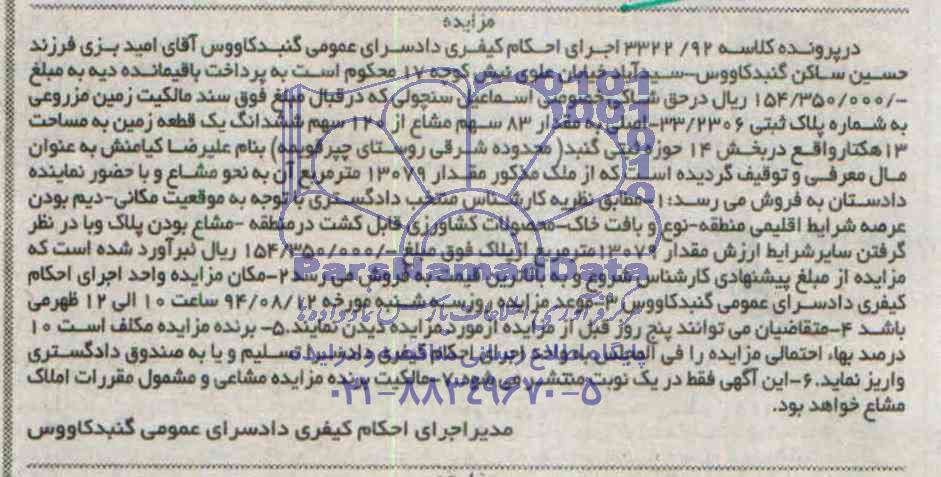 مزایده
درپرونده کلاسه ۹۲/ ۳۳۲۲ اجرای احکام کیفری دادسرای عمومی گنبدکاووس آقای امید بزی فرزند
حسین ساکن گنبدکاووس-سیدآباد خیابان علوی نبش کوچه ۱۷ محکوم است به پرداخت باقیمانده دیه به مبلغ
۱۵۴/۳۵۰/۰۰۰/- ریال درحق شاکی خصوصی اسماعیل سنچولی که درقبال مبلغ فوق سند مالکیت زمین مزروعی
به شماره پلاک ثبتی ۳۳/۲۳۰۶-اصلی به مقدار ۸۳ سهم مشاع از ۱۲۰ سهم ششدانگ یک قطعه زمین به مساحت
۱۳هکتارواقع دربخش ۱۴ حوزه ثبتی گنبد( محدوده شرقی روستای چپرقویمه) بنام علیرضا کیامنش به عنوان
مال معرفی و توقیف گردیده است که از ملک مذکور مقدار ۱۳۰۷۹ مترمربع آن به نحو مشاع و با حضور نماینده
دادستان به فروش می رسد:۱-مطابق نظریه کارشناس منتخب دادگستری با توجه به موقعیت مکانی-دیم بودن
عرصه شرایط اقلیمی منطقه-نوع و بافت خاک-محصولات کشاورزی قابل کشت درمنطقه -مشاع بودن پلاک وبا در نظر
گرفتن سایرشرایط ارزش مقدار ۱۳۰۷۹مترمربع ازپلاک فوق مبلغ ۱۵۴/۳۵۰/۰۰۰/- ریال برآورد شده است که
مزایده از مبلغ پیشنهادی کارشناس شروع و به بالاترین قیمت به فروش می رسد۲-مکان مزایده واحد اجرای احکام
کیفری دادسرای عمومی گنبدکاووس ۳-موعد مزایده روزسه شنبه مورخه ۹۴/۰۸/۱۲ ساعت ۱۰ الی ۱۲ ظهرمی
باشد ۴-متقاضیان می توانند پنج روز قبل از مزایده ازمورد مزایده دیدن نمایند.۵- برنده مزایده مکلف است ۱۰
درصد بهاء احتمالی مزایده را فی المجلس به واحد اجرای احکام کیفری دادسرا تسلیم و یا به صندوق دادگستری
واریز نماید.۶-این آگهی فقط در یک نوبت منتشر می شود.۷-مالکیت برنده مزایده مشاعی و مشمول مقررات املاک
مشاع خواهد بود.
مدیراجرای احکام کیفری دادسرای عمومی گنبدکاووس
ParsNamadData
۰۲۱-۸۸۳۴۹۶۷۰-۵